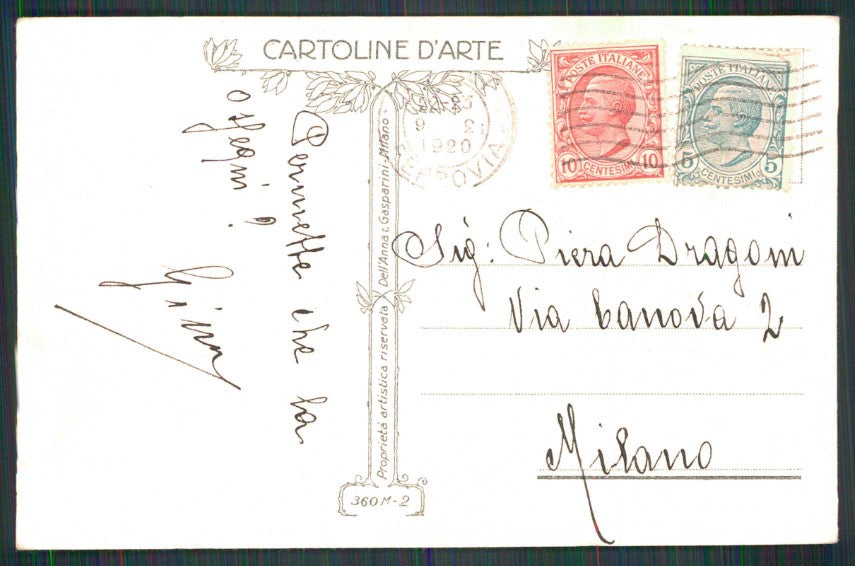 CARTOLINE D'ARTE
Permette che la
ossequi?
Gino
Proprietà artistica riservata Dell'Anna & Gasparini-Milano
360M-2
9 2
1920
FERROVIA
POSTE ITALIANE
10 10
CENTESIMI
POSTE ITALIANE
5 5
CENTESIMI
Sig: Piera Dragoni
Via Canova 2
Milano